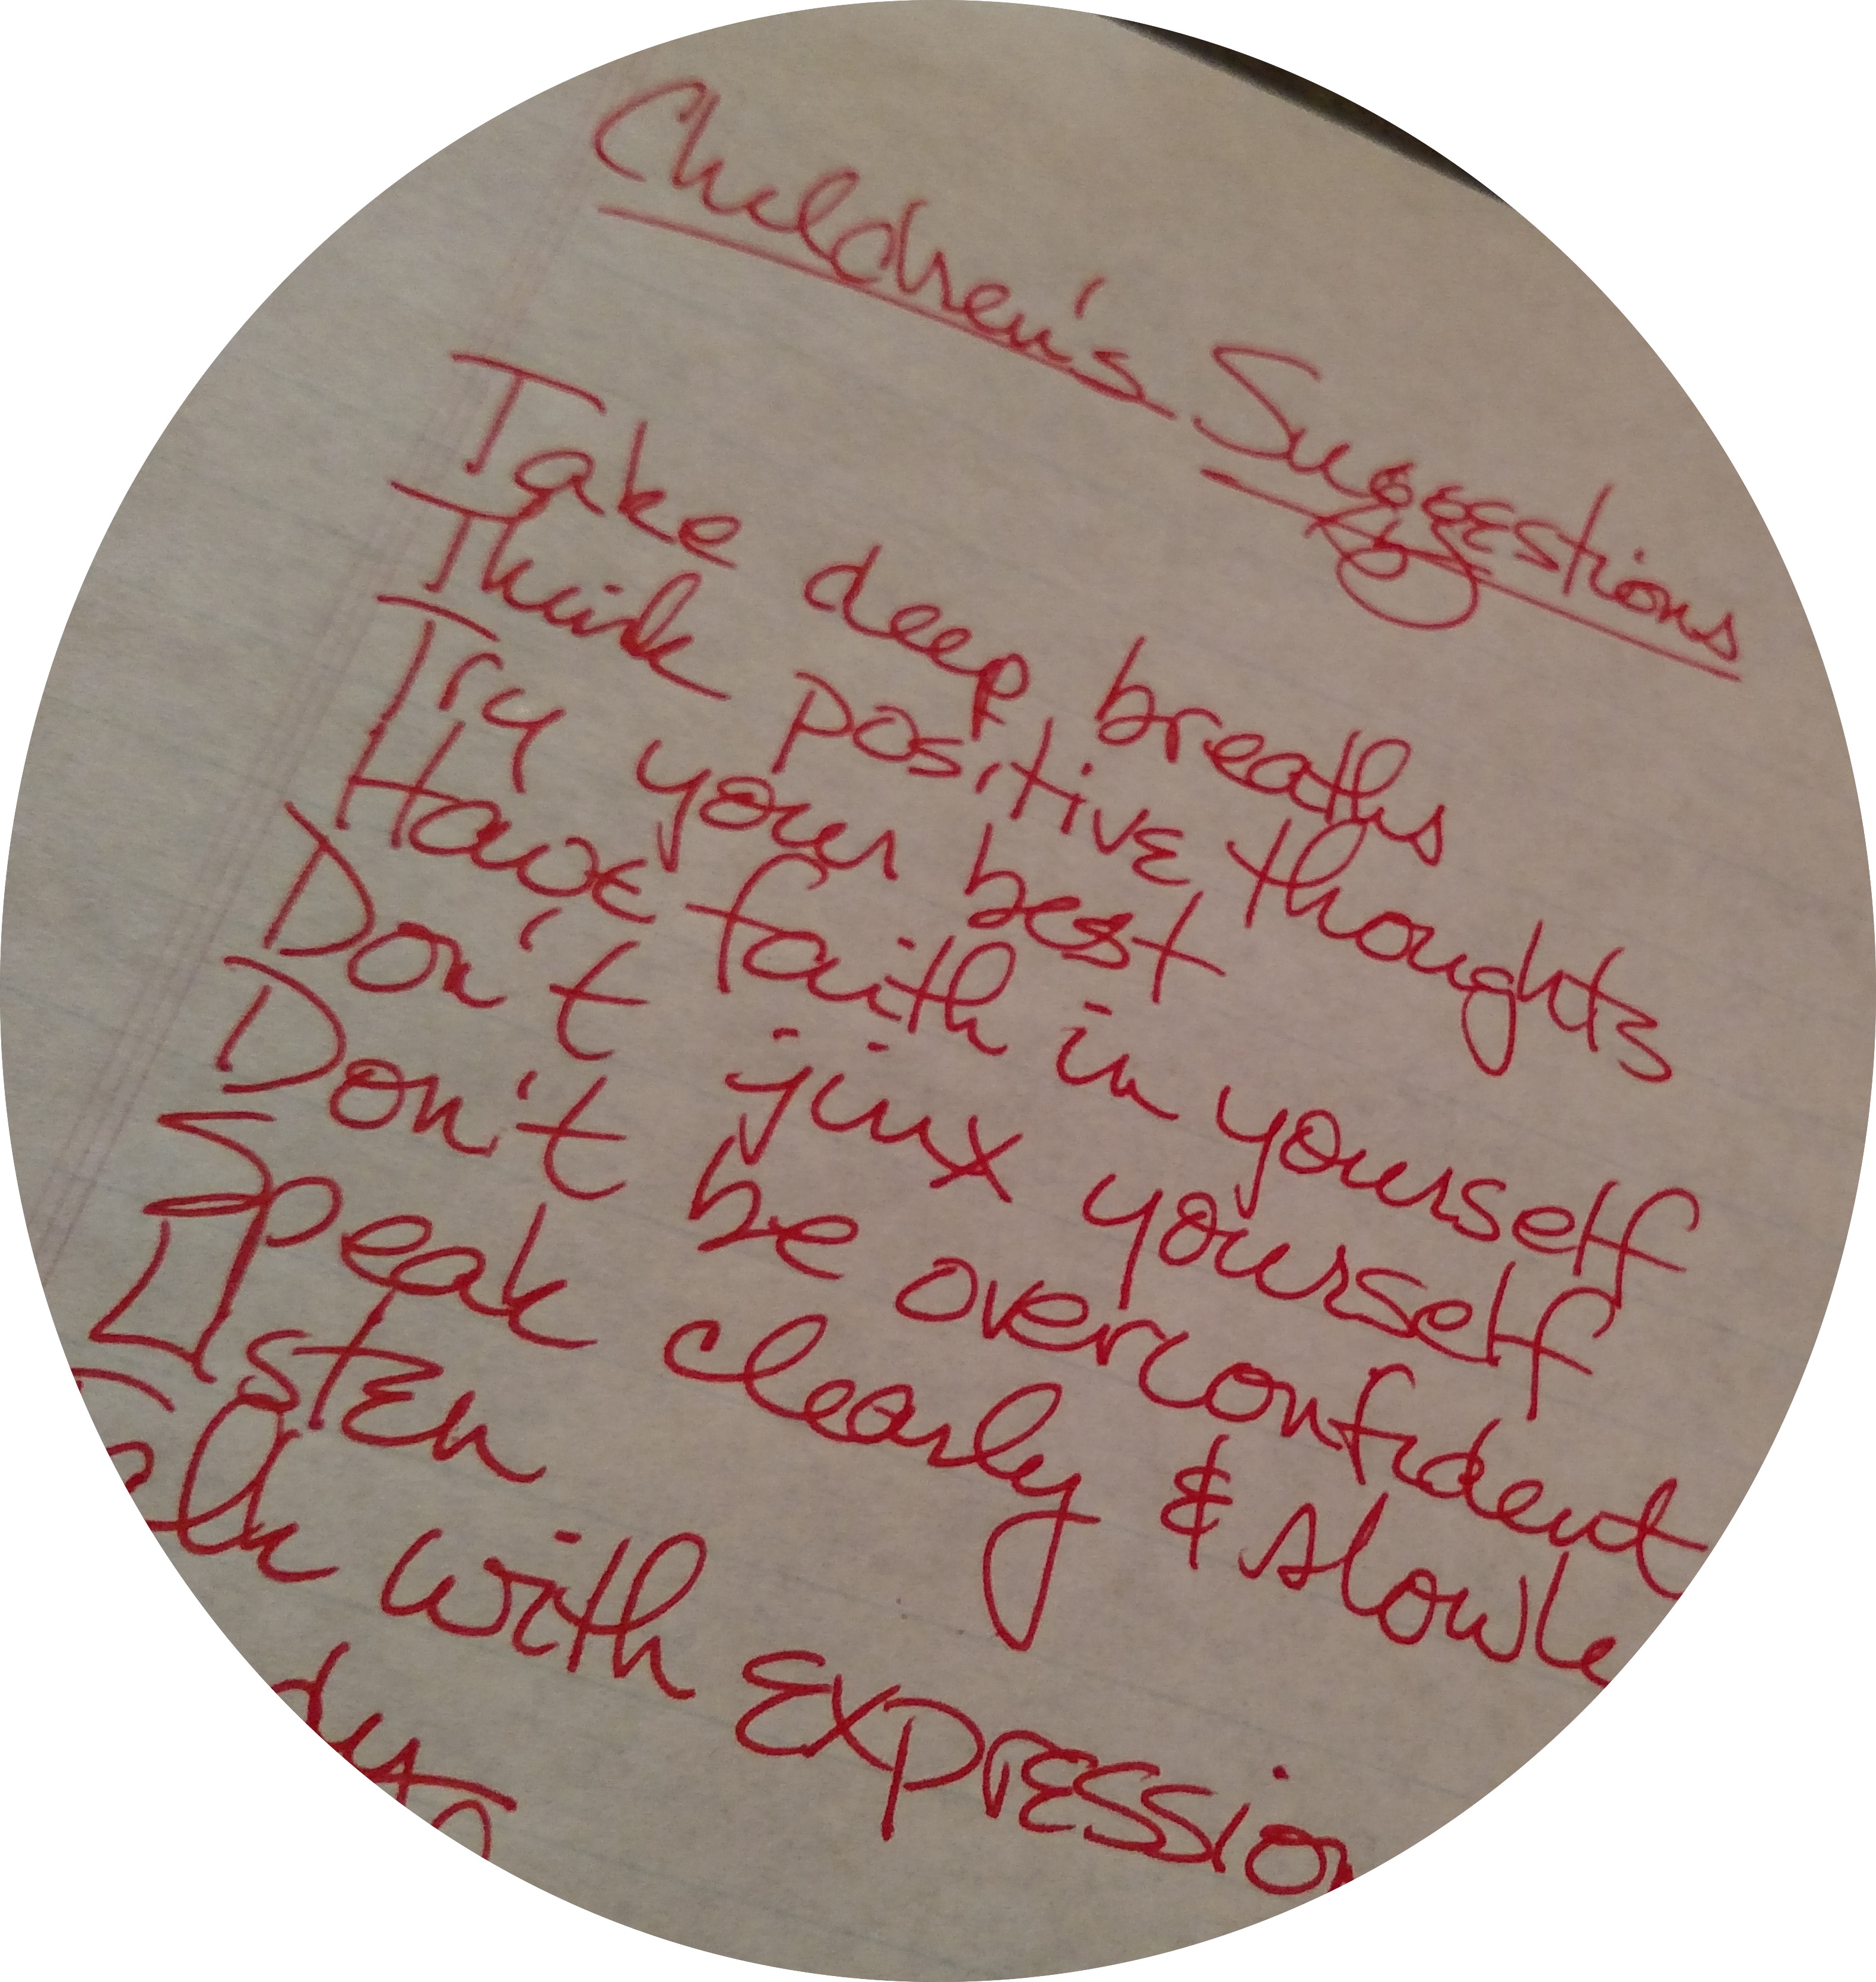 Children's Suggestions
Take deep breaths
Think positive thoughts
Try your best
Have faith in yourself
Don't jinx yourself
Don't be overconfident
Speak clearly & slowl
Listen
with expression